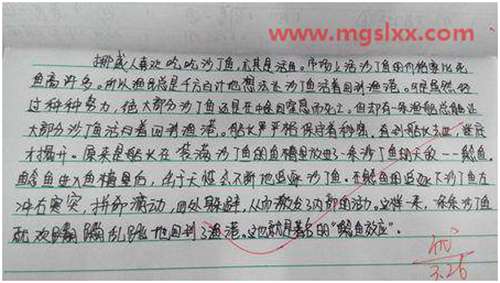 www.mgslxx.com
挪威人喜欢吃沙丁鱼,尤其是活鱼。市场上活沙丁鱼的价格要比死
鱼高许多。所以渔民总是千方百计地想法让沙丁鱼活着回到渔港。可是虽然经
过种种努力,绝大部分沙丁鱼还是在中途因窒息而死亡。但却有一条渔船总能让
大部分沙丁鱼活着回到渔港。船长严格保守着秘密。直到船长去世,谜底
才揭开。原来是船长在装满沙丁鱼的鱼槽里放进一条沙丁鱼的天敌——鲶鱼。
鲶鱼进入鱼槽里后,由于天性会不断地追逐沙丁鱼。在鲶鱼的追逐下沙丁鱼左
冲右突,拼命游动,四处躲避,从而激发了内部的活力。这样一来,一条条沙丁鱼
就欢蹦乱跳地回到了渔港。这也就是著名的“鲶鱼效应”。
优
3.26